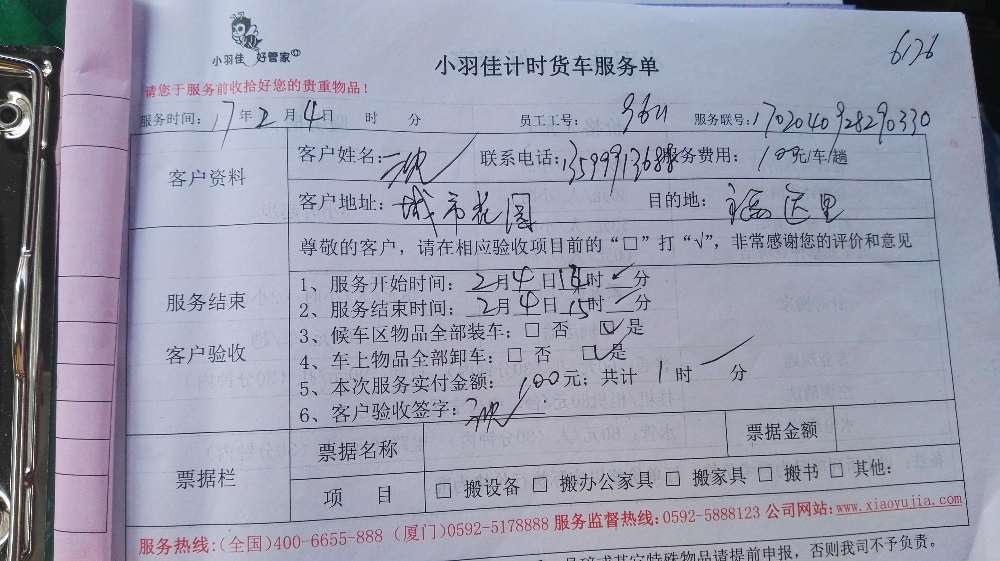 小羽佳 好管家
小羽佳计时货车服务单
6126
请您于服务前收拾好您的贵重物品！
服务时间：17年2月4日 时 分 员工工号： 服务联号：1702040928290330
客户资料
客户姓名： 联系电话：13599913688 服务费用：100元/车/趟
客户地址：城市花园 目的地：
尊敬的客户，请在相应验收项目前的“□”打“√”，非常感谢您的评价和意见
服务结束
客户验收
1、服务开始时间：2月4日14时 分
2、服务结束时间：2月4日15时 分
3、候车区物品全部装车：□ 否 ☑ 是
4、车上物品全部卸车：□ 否 ☑ 是
5、本次服务实付金额：100元；共计1时 分
6、客户验收签字：
票据栏
票据名称 票据金额
项 目 □ 搬设备 □ 搬办公家具 □ 搬家具 □ 搬书 □ 其他：
服务热线：(全国)400-6655-888 (厦门)0592-5178888 服务监督热线：0592-5888123 公司网站：www.xiaoyujia.com
或其它特殊物品请提前申报，否则我司不予负责。